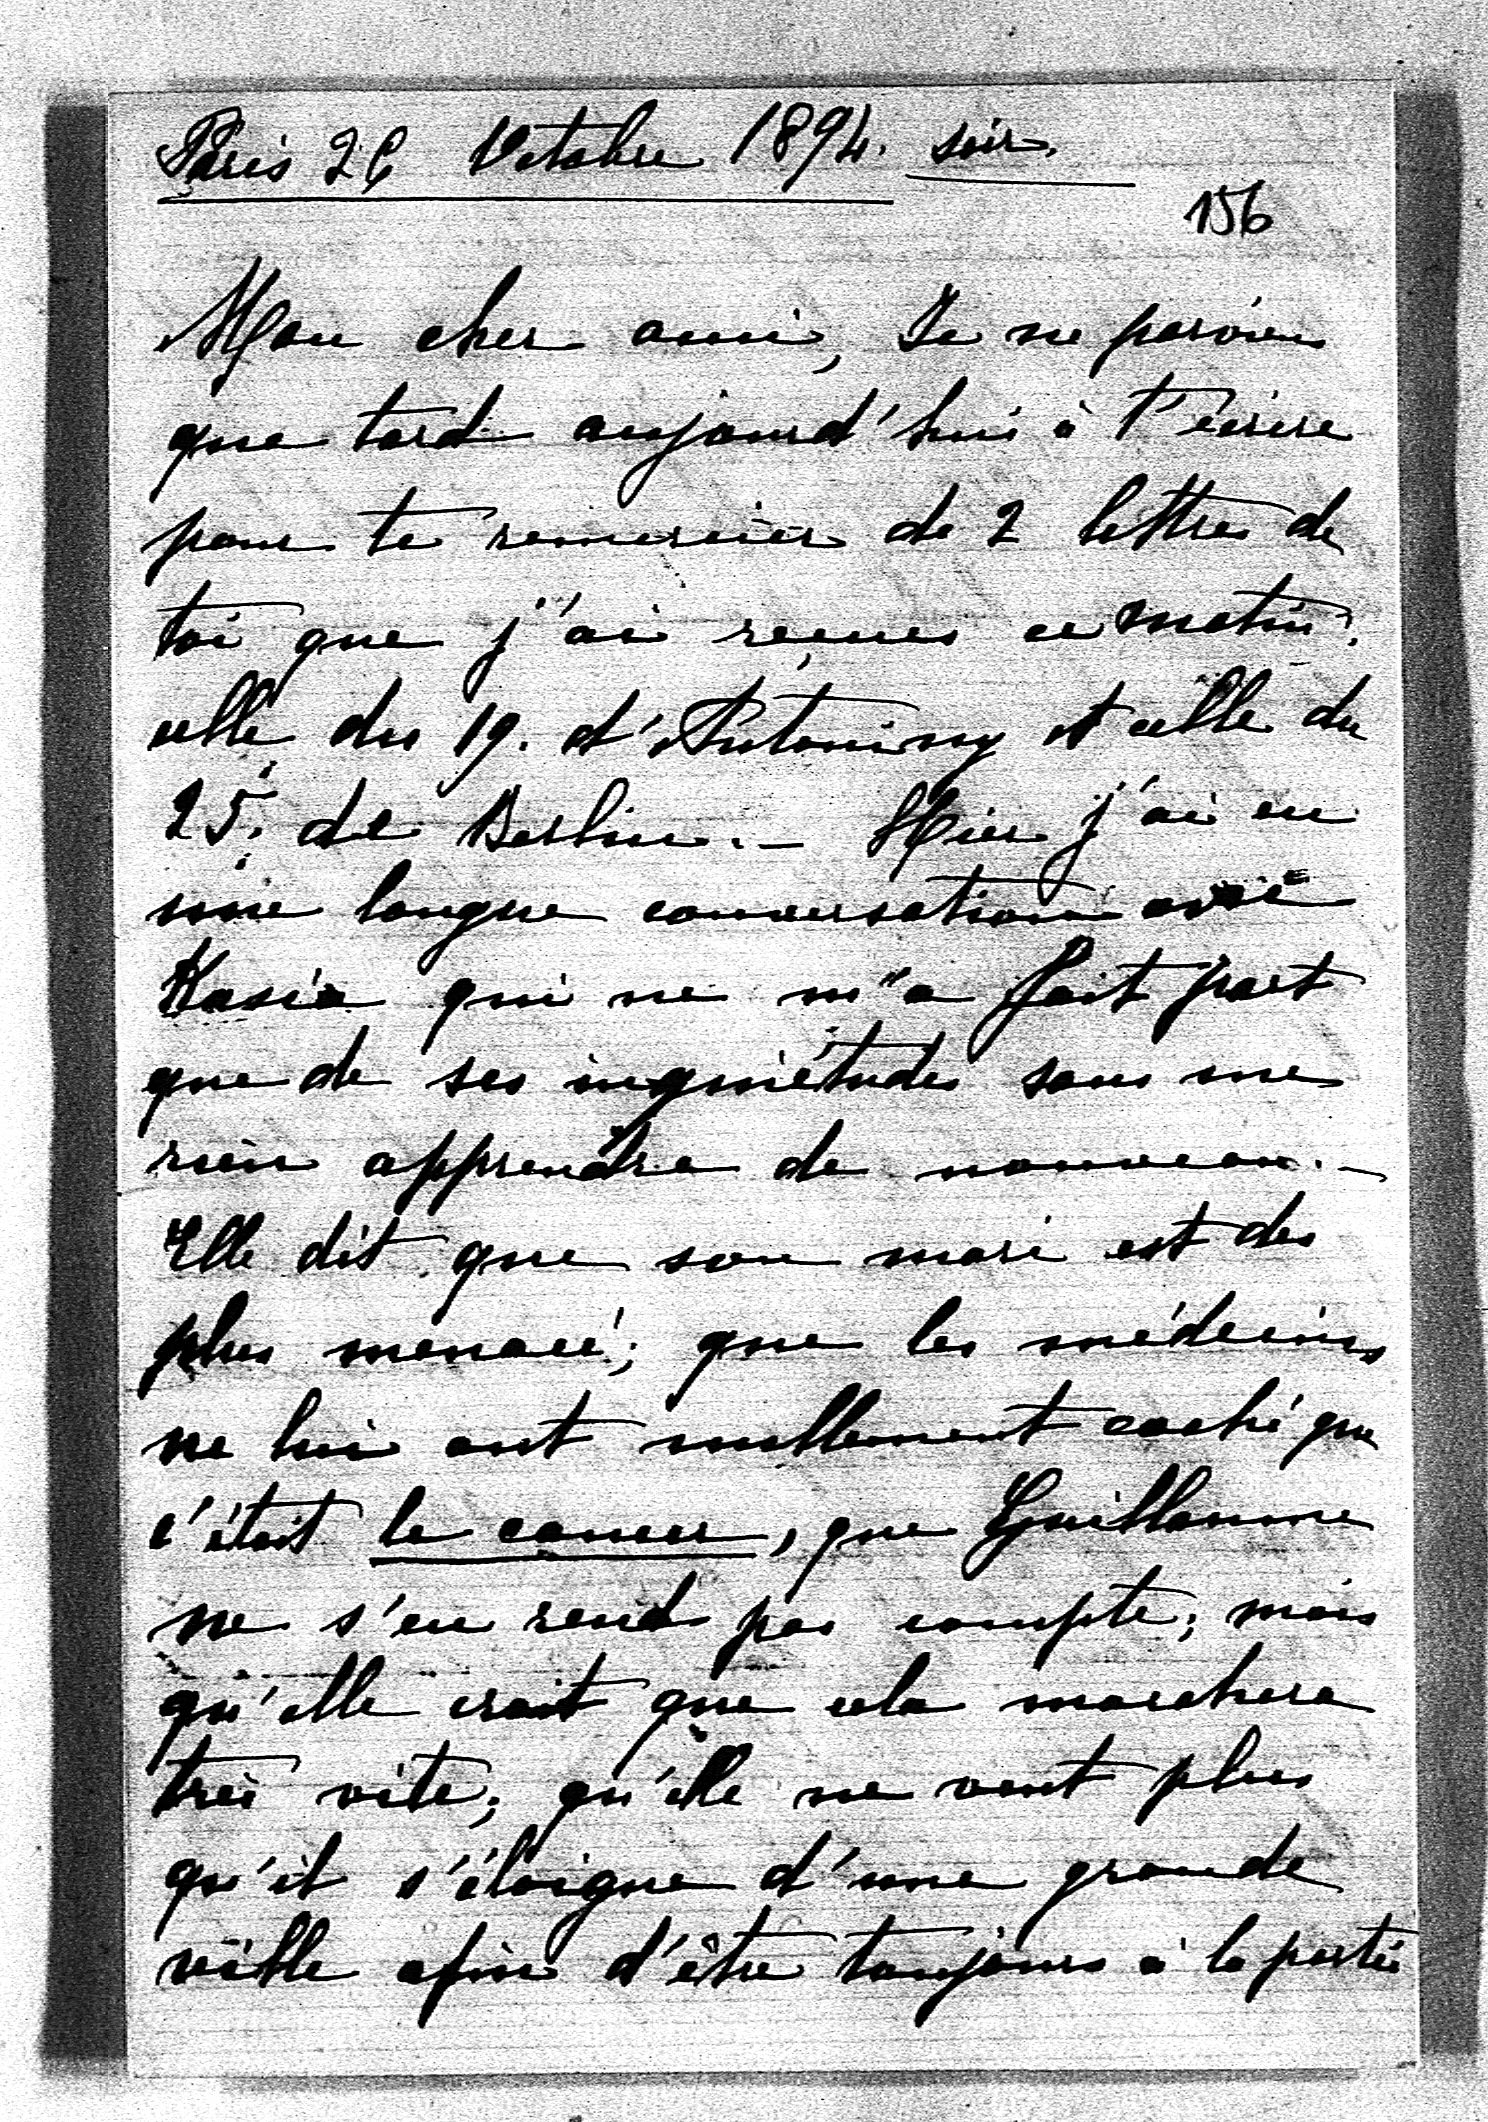 Paris 26 Octobre 1894. soir.
156
Mon cher ami, Je ne parviens
que tard aujourd'hui à t'écrire
pour te remercier de 2 lettres de
toi que j'ai reçues ce matin:
celle du 19. d'Antoniny et celle du
25. de Berlin. – Hier j'ai eu
une longue conversation avec
Kasia qui ne m'a fait part
que de ses inquiétudes sans me
rien apprendre de nouveau. –
Elle dit que son mari est des
plus menacé; que les médecins
ne lui ont nullement caché que
c'était le cancer, que Guillaume
ne s'en rend pas compte; mais
qu'elle croit que cela marchera
très vite; qu'elle ne veut plus
qu'il s'éloigne d'une grande
ville afin d'être toujours à la portée